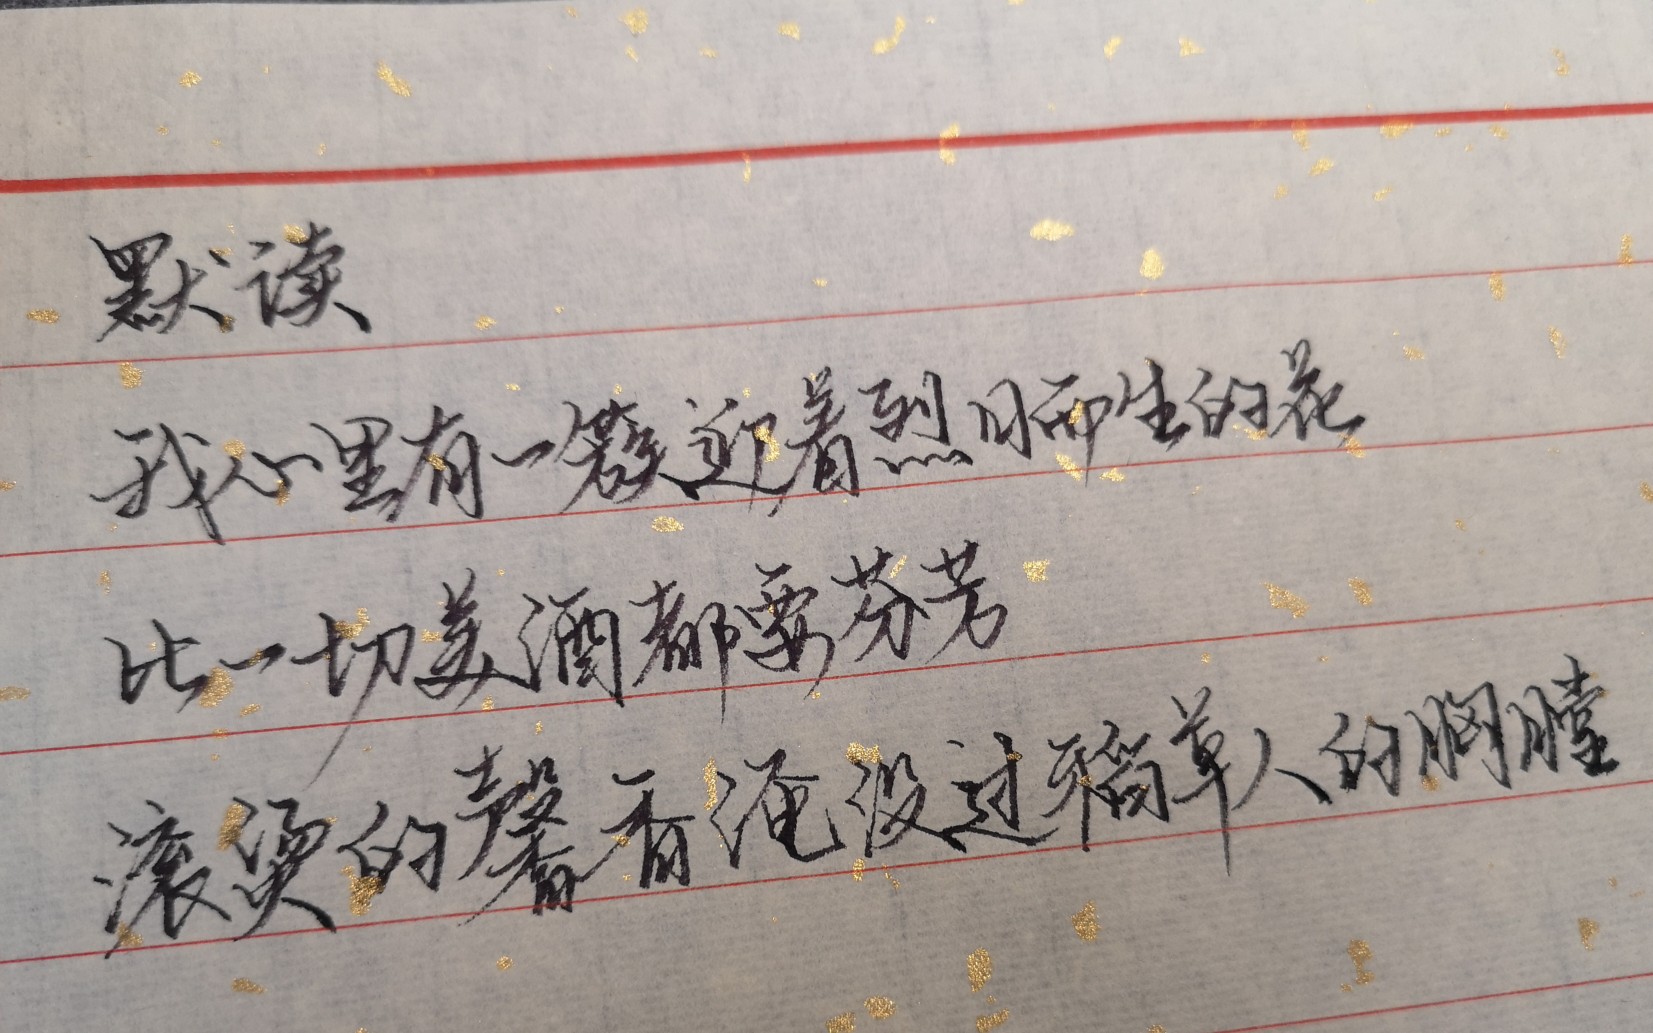 默读
我心里有一簇迎着烈日而生的花
比一切美酒都要芬芳
滚烫的馨香淹没过稻草人的胸膛